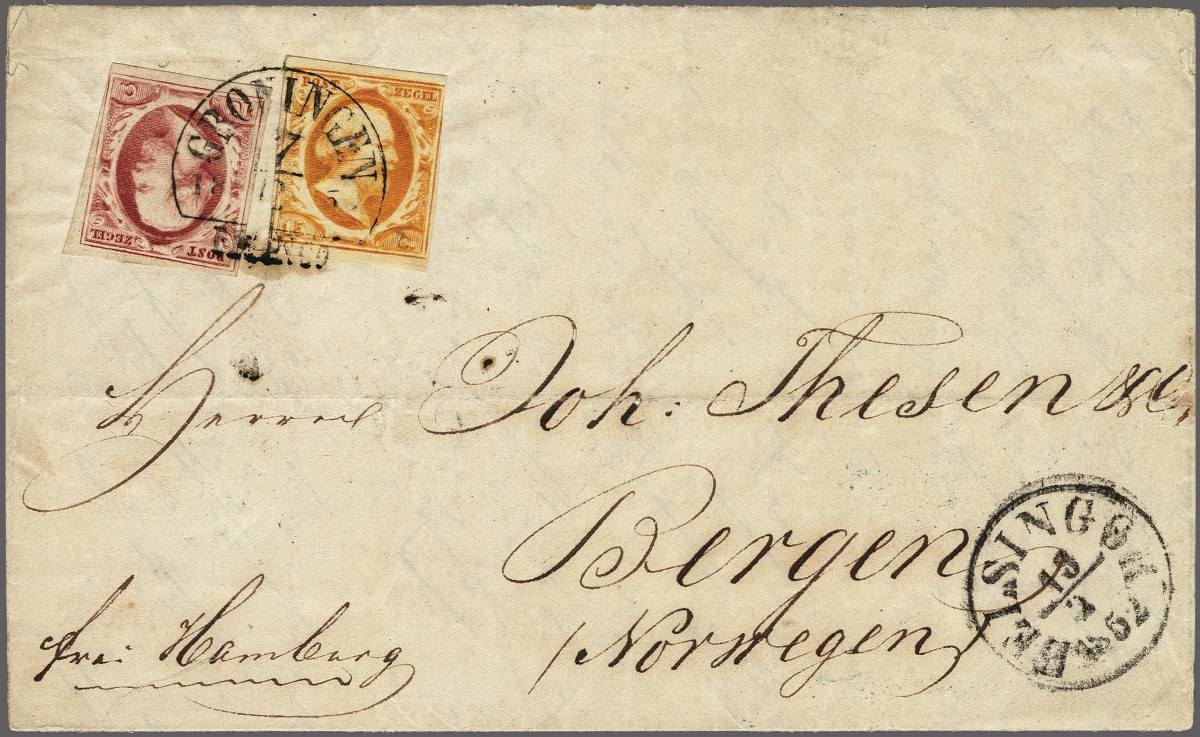 POST
ZEGEL
POST
ZEGEL
15
GRONINGEN
7
FRANCO
Herren Joh: Thesen & Co,
Bergen
(Norwegen)
frei Hamburg
HELSINGØR
13/5
1852